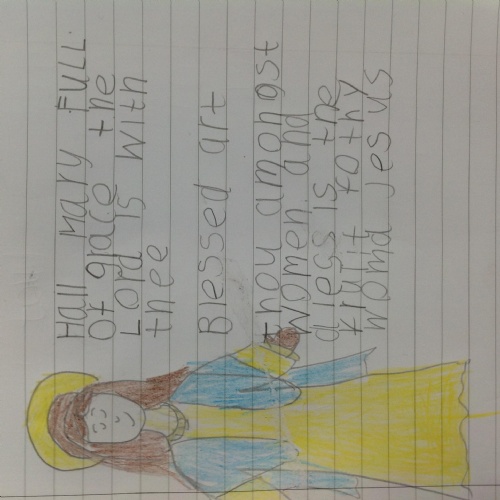 Hall mary FULL
Of grace the
Lord is with
thee
Blessed art
thou amongst
women and
aless is the
fruit fo thy
womd Jesus